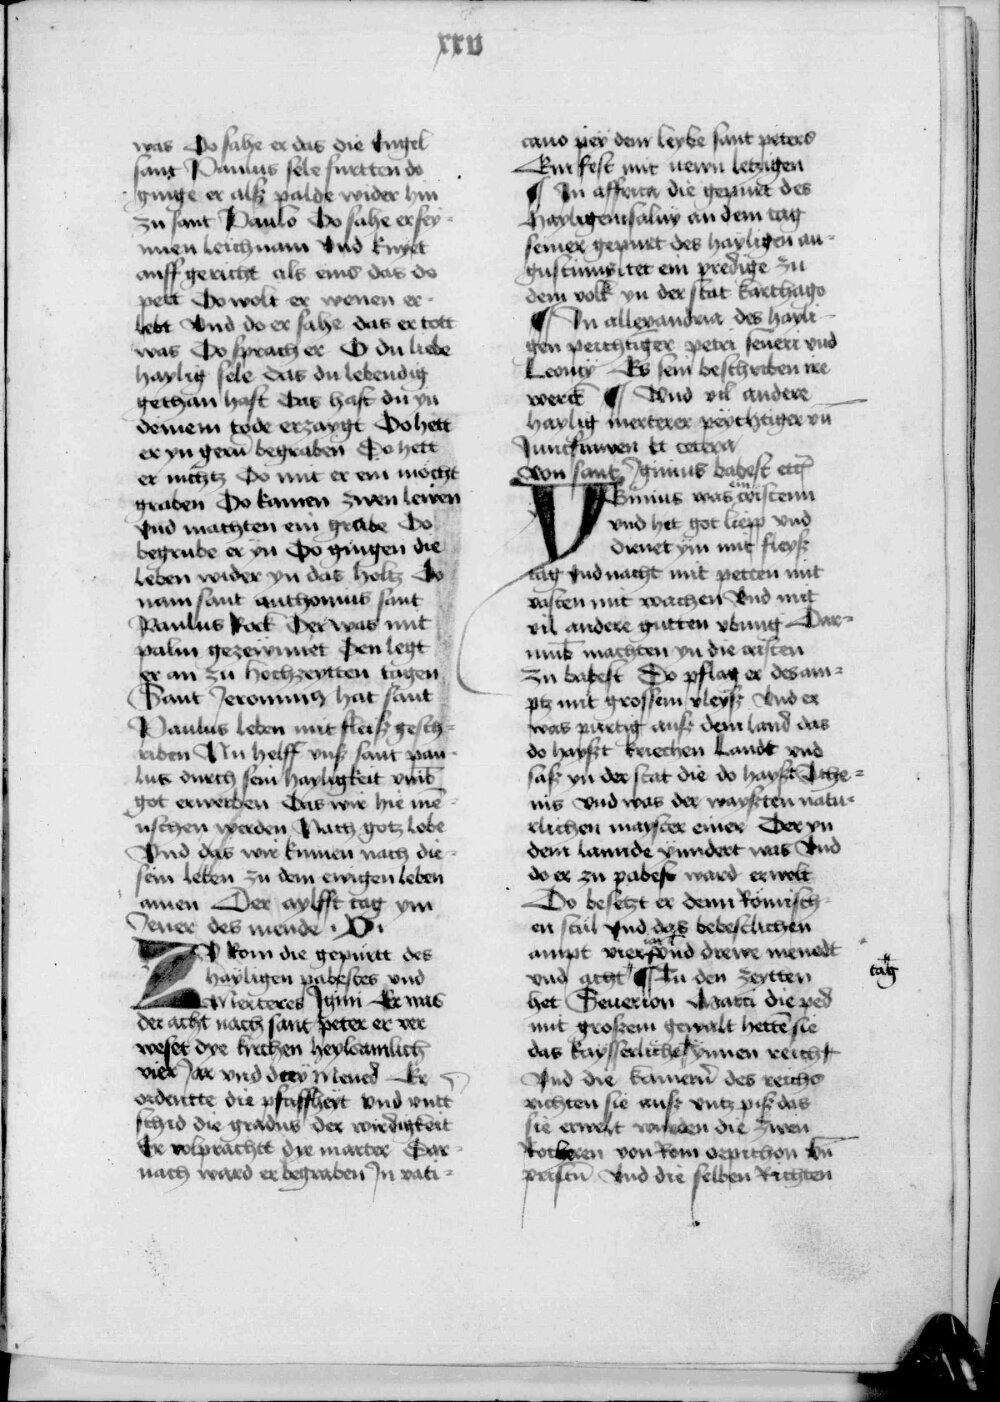 xxv
was Do sahe er das die Engel
sant Paulus sele furtten do
ginge er alß palde wider hin
zu sant Paulo Do sahe er sey-
nnen leichnam Vnd knyet
auff gericht als eins das do
pett Do wolt er wenen er-
lebt Vnd do er sahe das er tott
was Do sprach er O du liebe
haylig sele das du lebendig
gethan hast Das hast du yn
deinem tode erzaygt Do hett
er yn gern begraben Do hett
er nichtz Do mit er ein mocht
graben Do kamen zwen lewen
Vnd machten ein grabe Do
begrube er yn Do gingen die
leben wider yn das holtz Do
nam sant anthonius sant
Paulus Rock Der was mit
palm gezewmet Den legt
er an zu hochzeytten tagen
Sant Jeronimus hat sant
Paulus leben mit fleiß gesch-
riben Nu helff vnß sant pau-
lus durch sein hayligkeit vmb
got erwerben Das wir hie me-
nschen werden Nach gotz lobe
Vnd das wir kumen nach die-
sem leben zu dem ewigen leben
amen Der aylfft tag ym
Jener des mende · D ·
Zu Rom die gepurtt des
hayligen pabestes vnd
Merteres Igini Er was
der acht nach sant peter er ver
weset dye kirchen heylsamlich
vier Jar vnd drey Mened Er
ordentte die pfaffheyt vnd vntt
schid die gradus der wirdigkeit
Er volprachtt dye marter Dar-
nach ward er begraben Jn vati-
cano pey dem leybe sant peters
Ein fest mit newn letzigen
¶ In affrica die gepurt des
hayligen salvy an dem tag
seiner gepurt des hayligen au-
gustinus tet ein predige zu
dem volk yn der stat karthago
¶ In allexandria des hayli-
gen peichtiger petri seueri vnd
Leoncy Es sein beschriben ire
werck ¶ Vnd vil andere
haylig merterer peychtiger vn
Junckfrawen et cetera
Von sant Iginius babest etc
Iginius was ein cristenn
vnd het got liep vnd
dienet ym mit fleyß
tag vnd nacht mit petten mit
vasten mit wachen Vnd mit
vil andere gutten vbung Dar-
umb machten yn die cristen
zu babest Do pflag er des am-
ptz mit grossem vleyß Vnd er
was purtig auß dem land das
do hayßt kriechen Landt vnd
saß yn der stat die do hayßt Athe-
nis Vnd was der wayßten natu-
rlichen mayster einer Der yn
dem lannde vundert was Vnd
do er zu pabest ward erwelt
Do besetzt er denn Römisch-
en stul Vnd des bebestlichen
ampt vier iar vnd drewe menedt
vnd acht tag ¶ In den zeytten
het Seuerion Marci die ped
mit großem gewalt hetten sie
das kaysserliche ynnen reicht
Vnd die kamern des reichs
richten sie auß vntz piß das
sie erwelt wurden die zwen
von Rom vn
Vnd die selben Richten